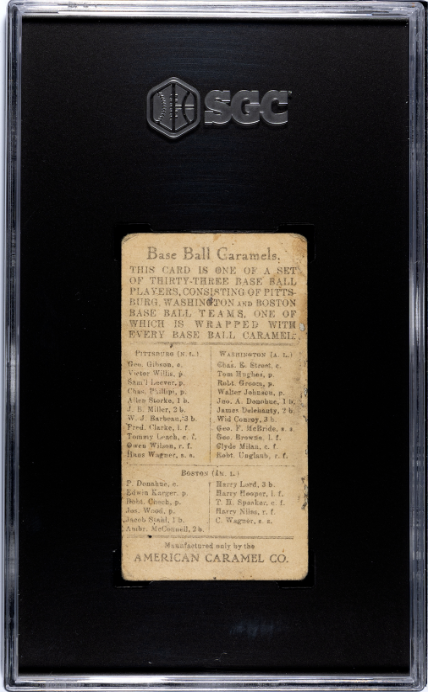 SGC
Base Ball Caramels.
THIS CARD IS ONE OF A SET
OF THIRTY-THREE BASE BALL
PLAYERS, CONSISTING OF PITTS-
BURG, WASHINGTON AND BOSTON
BASE BALL TEAMS. ONE OF
WHICH IS WRAPPED WITH
EVERY BASE BALL CARAMEL.
PITTSBURG (N. L.)
Geo. Gibson, c.
Victor Willis, p.
Sam'l Leever, p.
Chas. Phillipi, p.
Allen Storke, 1 b.
J. B. Miller, 2 b.
W. J. Barbeau, 3 b.
Fred. Clarke, l. f.
Tommy Leach, c. f.
Owen Wilson, r. f.
Hans Wagner, s. s.
WASHINGTON (A. L.)
Chas. E. Street, c.
Tom Hughes, p.
Robt. Groom, p.
Walter Johnson, p.
Jno. A. Donohue, 1 b.
James Delehanty, 2 b.
Wid Conroy, 3 b.
Geo. F. McBride, s. s.
Geo. Browne, l. f.
Clyde Milan, c. f.
Robt. Unglaub, r. f.
BOSTON (A. L.)
P. Donahue, c.
Edwin Karger, p.
Robt.
Jos. Wood, p.
Jacob Stahl, 1 b.
Ambr. McConnell, 2 b.
Harry Lord, 3 b.
Harry Hooper, l. f.
Speaker, c. f.
Harry Niles, r. f.
C. Wagner, s. s.
Manufactured only by the
AMERICAN CARAMEL CO.